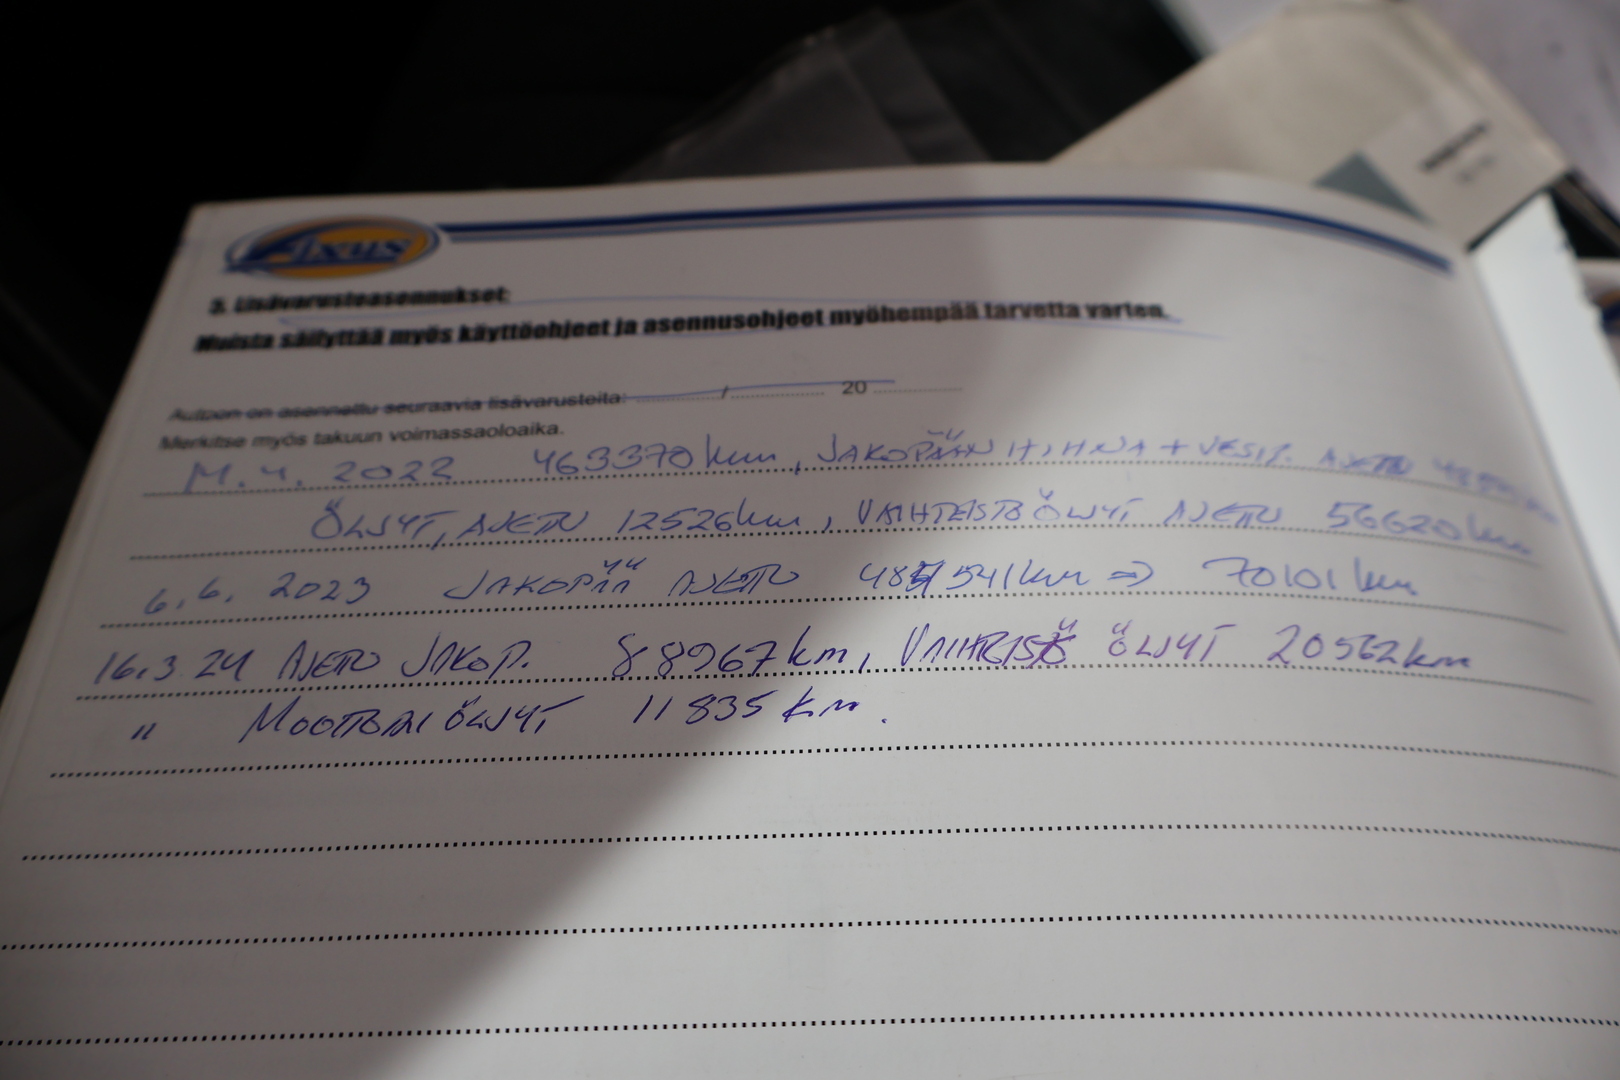 Fixus
5. Lisävarusteasennukset:
Muista säilyttää myös käyttöohjeet ja asennusohjeet myöhempää tarvetta varten.
Autoon on asennettu seuraavia lisävarusteita: ............/............ 20 ............
Merkitse myös takuun voimassaoloaika.
11.4. 2022 463370 km, JAKOPÄÄN HIHNA + VESIP. AJETTU
ÖLJYT, AJETTU 12526 km, VAIHTEISTOÖLJYT AJETTU 56620 km
6.6. 2023 JAKOPÄÄ AJETTU 541 km => 70101 km
16.3.24 AJETTU JAKOP. 88967 km, VAIHTEISTO ÖLJYT 20562 km
" MOOTTORI ÖLJYT 11835 km.